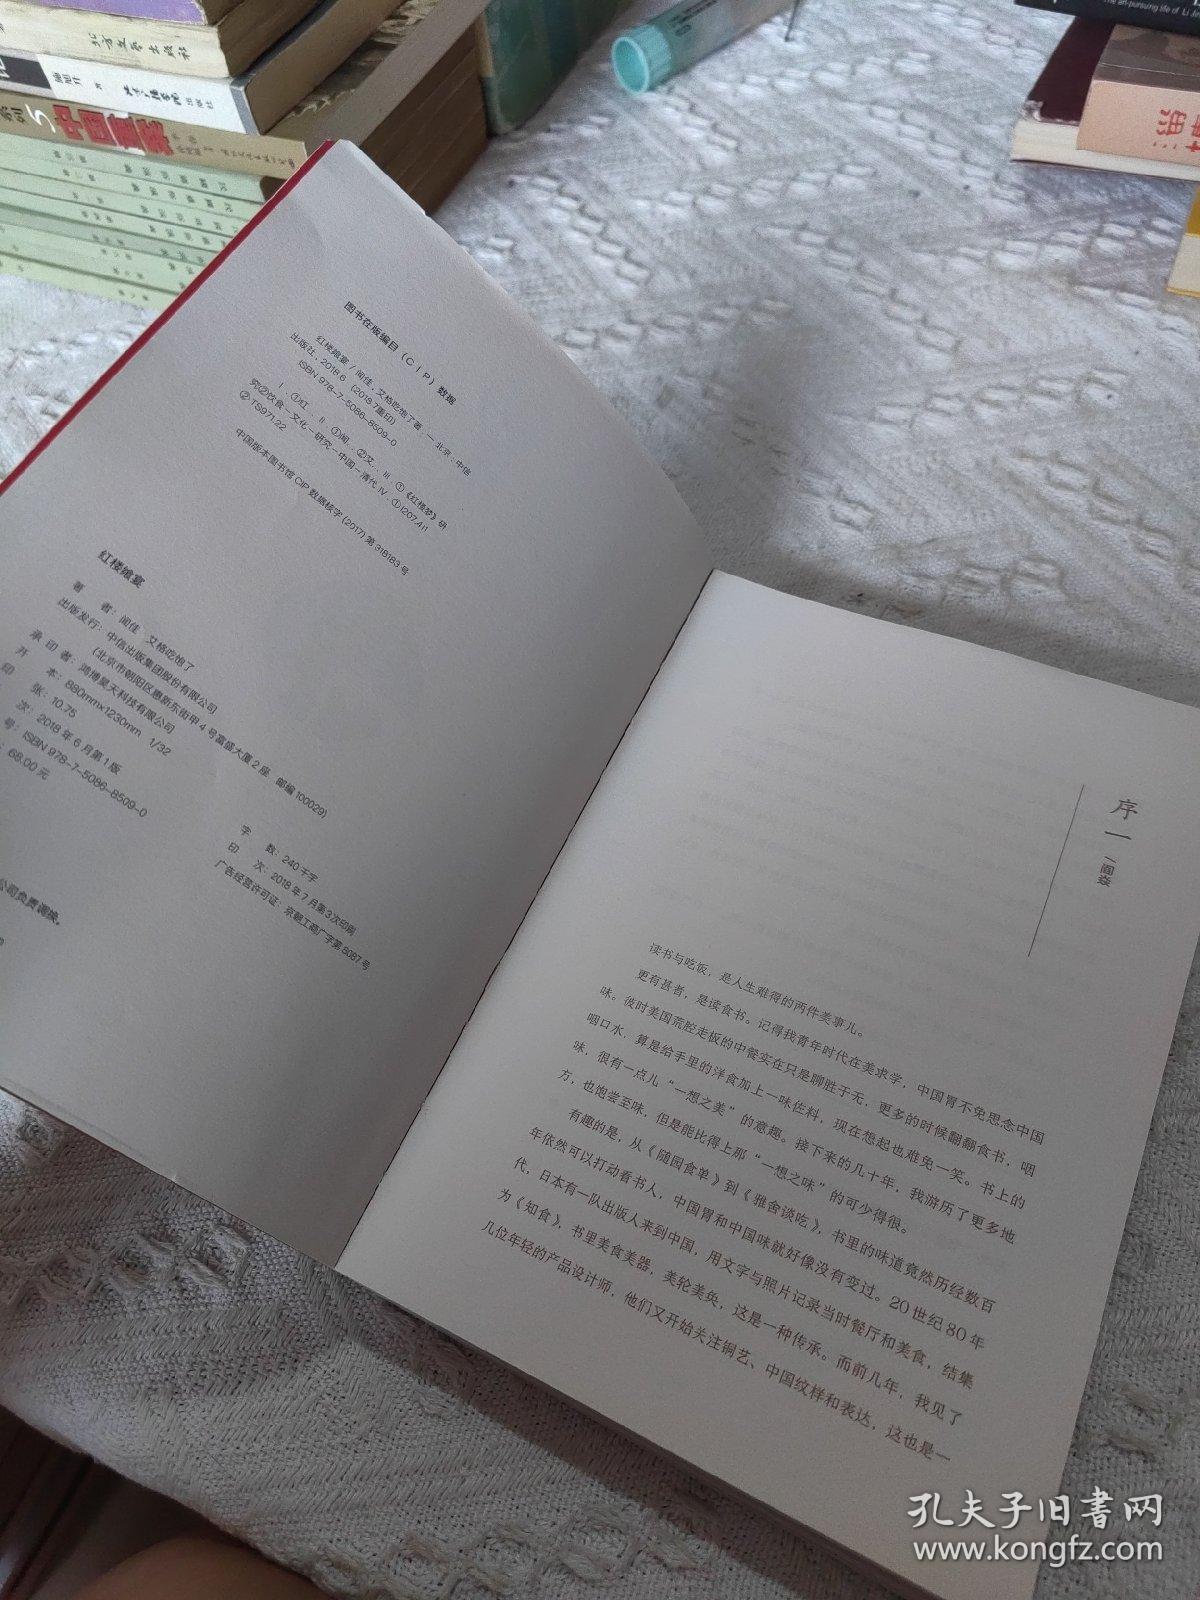 北方文艺出版社
施旭升 著
中国画案
The art-pursuing life of Li A
图书在版编目（CIP）数据
红楼飨宴 / 闻佳，艾格吃饱了著. — 北京：中信
出版社，2018.6（2018.7重印）
ISBN 978-7-5086-8509-0
Ⅰ.①红… Ⅱ.①闻… ②艾… Ⅲ.①《红楼梦》研
究②饮食－文化－研究－中国－清代 Ⅳ.①I207.411
②TS971.22
中国版本图书馆CIP数据核字（2017）第318183号
红楼飨宴
著 者：闻佳 艾格吃饱了
出版发行：中信出版集团股份有限公司
（北京市朝阳区惠新东街甲4号富盛大厦2座 邮编 100029）
承 印 者：鸿博昊天科技有限公司
开 本：880mm×1230mm 1/32
印 张：10.75
字 数：240千字
次：2018年6月第1版
印 次：2018年7月第3次印刷
号：ISBN 978-7-5086-8509-0
广告经营许可证：京朝工商广字第8087号
68.00元
公司负责调换。
序一
/ 阎焱
读书与吃饭，是人生难得的两件美事儿。
更有甚者，是读食书。记得我青年时代在美求学，中国胃不免思念中国
味。彼时美国荒腔走板的中餐实在只是聊胜于无，更多的时候翻翻食书，咽
咽口水，算是给手里的洋食加上一味佐料，现在想起也难免一笑。书上的
味，很有一点儿“一想之美”的意趣。接下来的几十年，我游历了更多地
方，也饱尝至味，但是能比得上那“一想之味”的可少得很。
有趣的是，从《随园食单》到《雅舍谈吃》，书里的味道竟然历经数百
年依然可以打动看书人，中国胃和中国味就好像没有变过。20世纪80年
代，日本有一队出版人来到中国，用文字与照片记录当时餐厅和美食，结集
为《知食》，书里美食美器，美轮美奂，这是一种传承。而前几年，我见了
几位年轻的产品设计师，他们又开始关注铜艺、中国纹样和表达，这也是一
孔夫子旧书网
www.kongfz.com